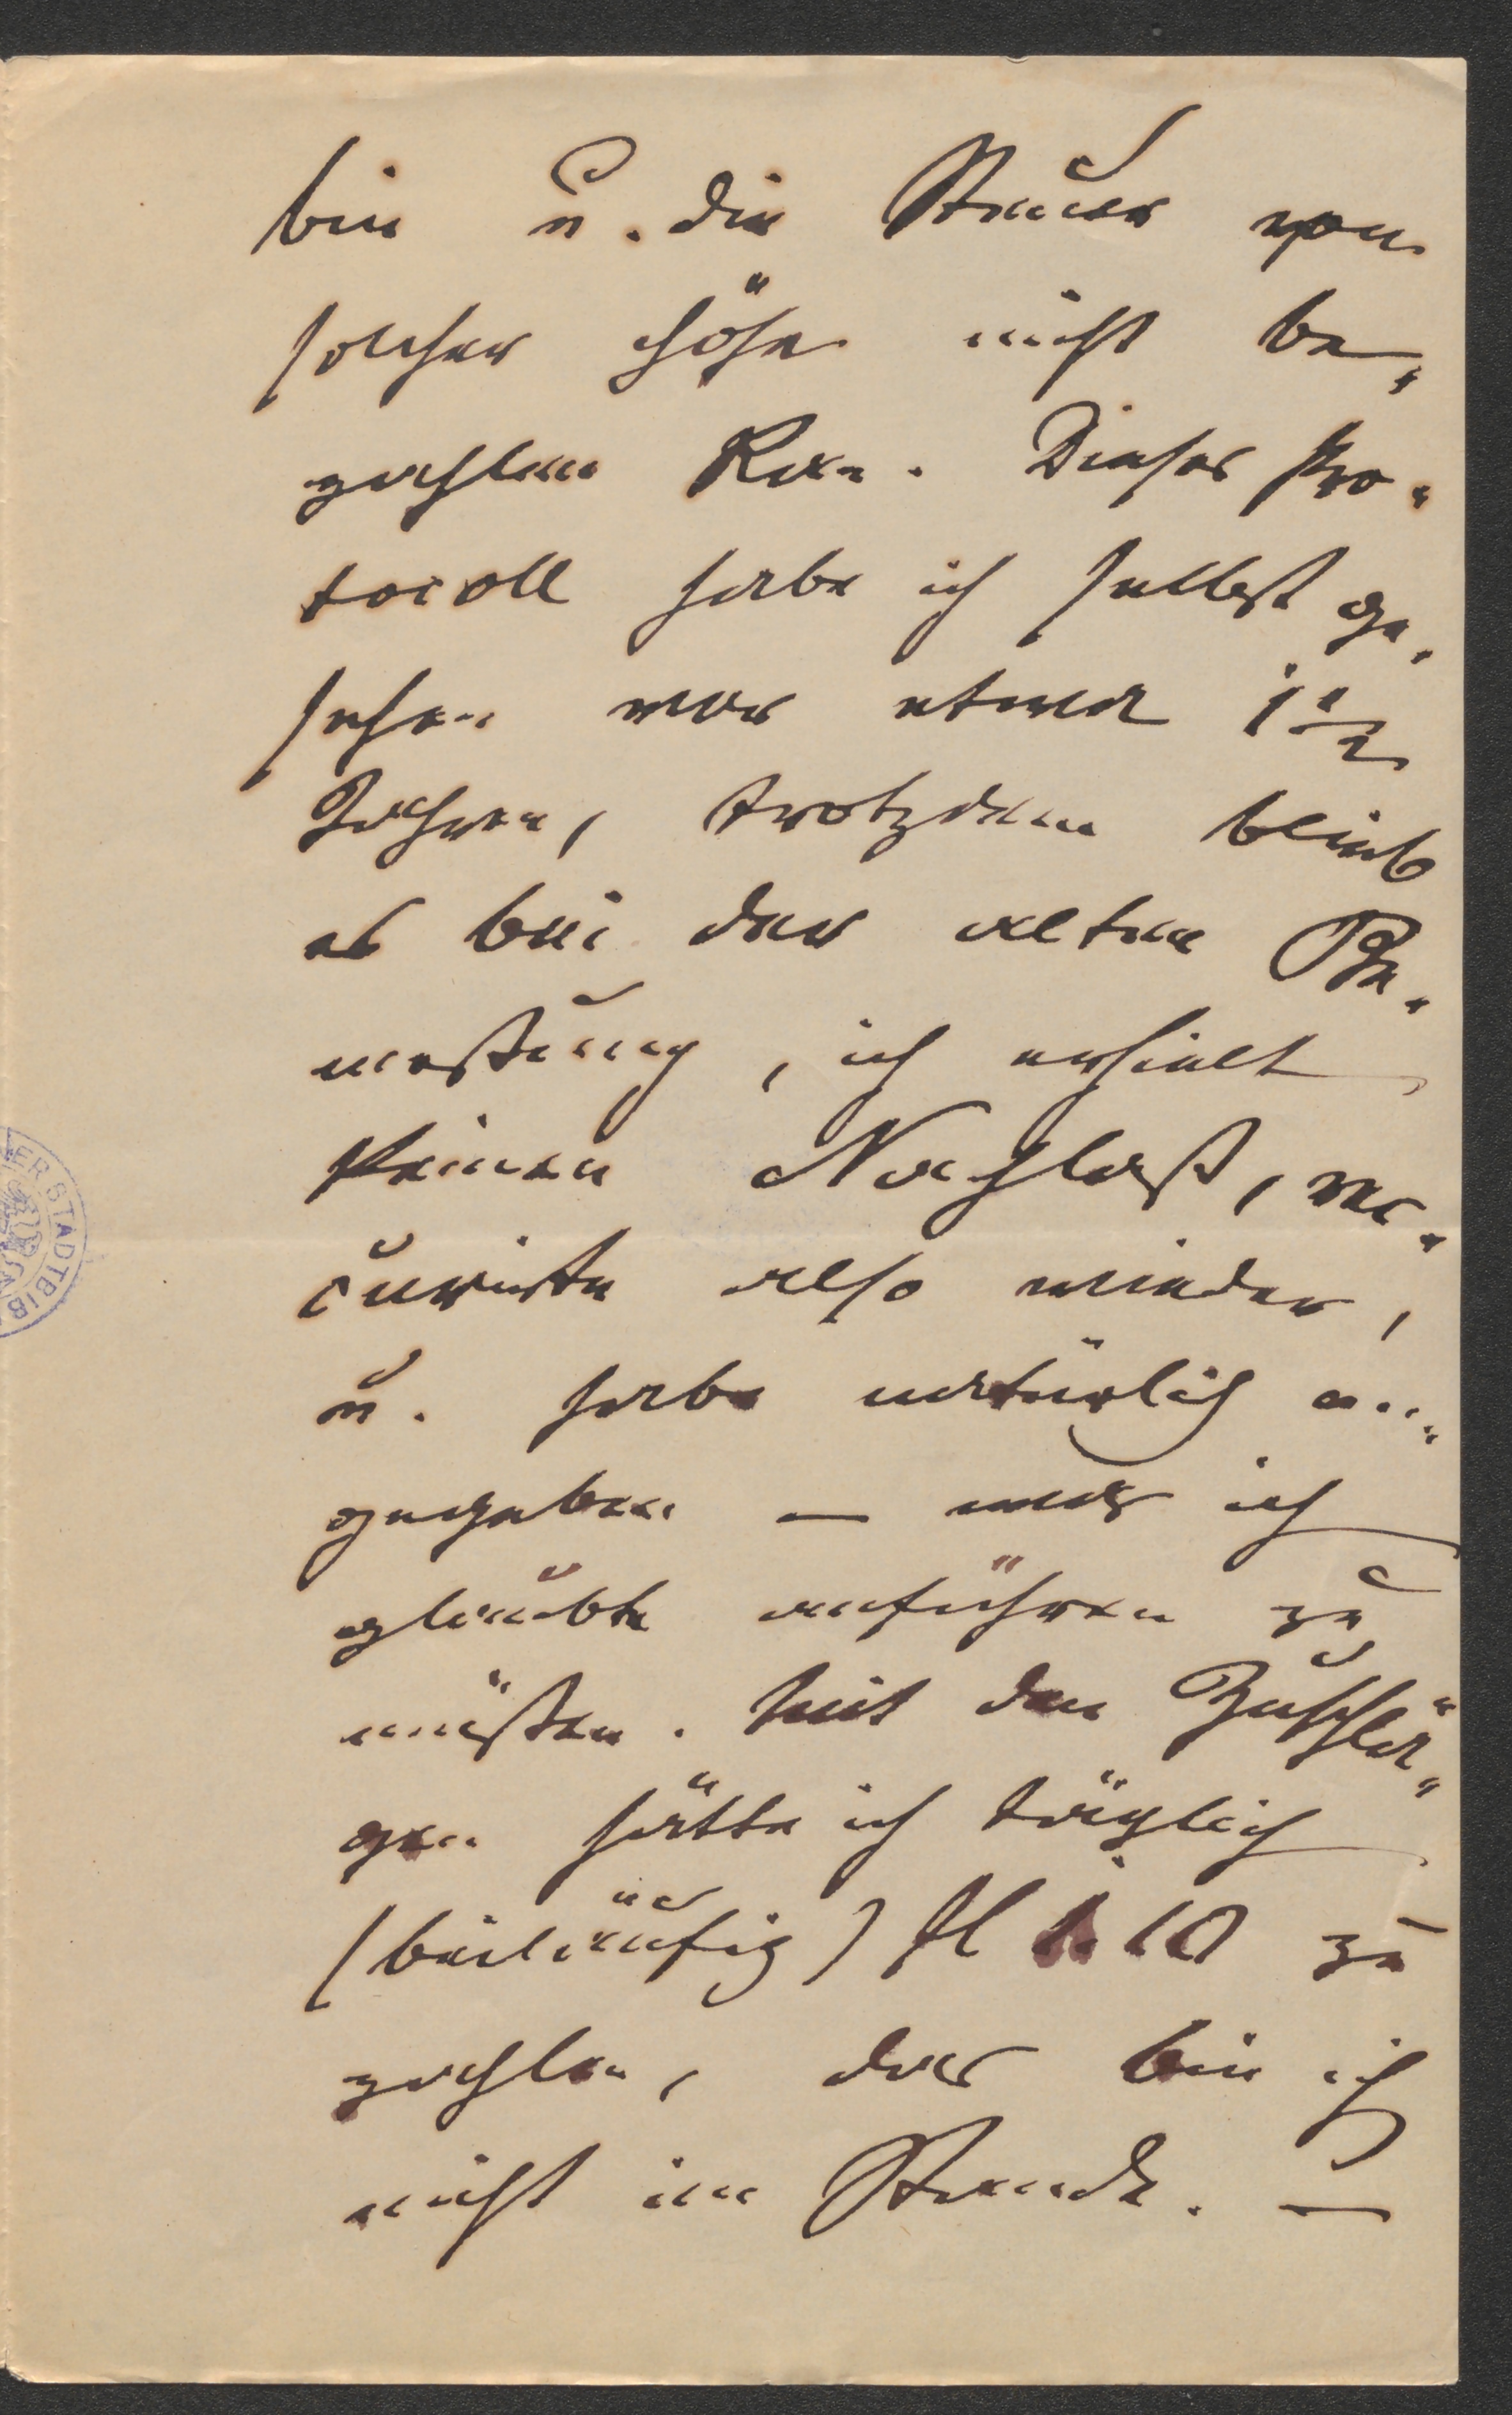 bin u. die Steuer von
solcher Höhe nicht be-
zahlen kan. Dieses Pro-
tocoll habe ich selbst ge-
sehen vor etwa 1 1/2
Jahren, trotzdem blieb
es bei der alten Be-
messung, ich erhielt
keinen Nachlaß, re-
currirte also wieder,
u. habe natürlich an-
gegeben — was ich
glaubte anführen zu
müßen. Mit den Zuschlä-
gen hätte ich täglich
(beiläufig) fl 1. 10 zu
zahlen, das bin ich
nicht im Stande. —
ER STADTBIB